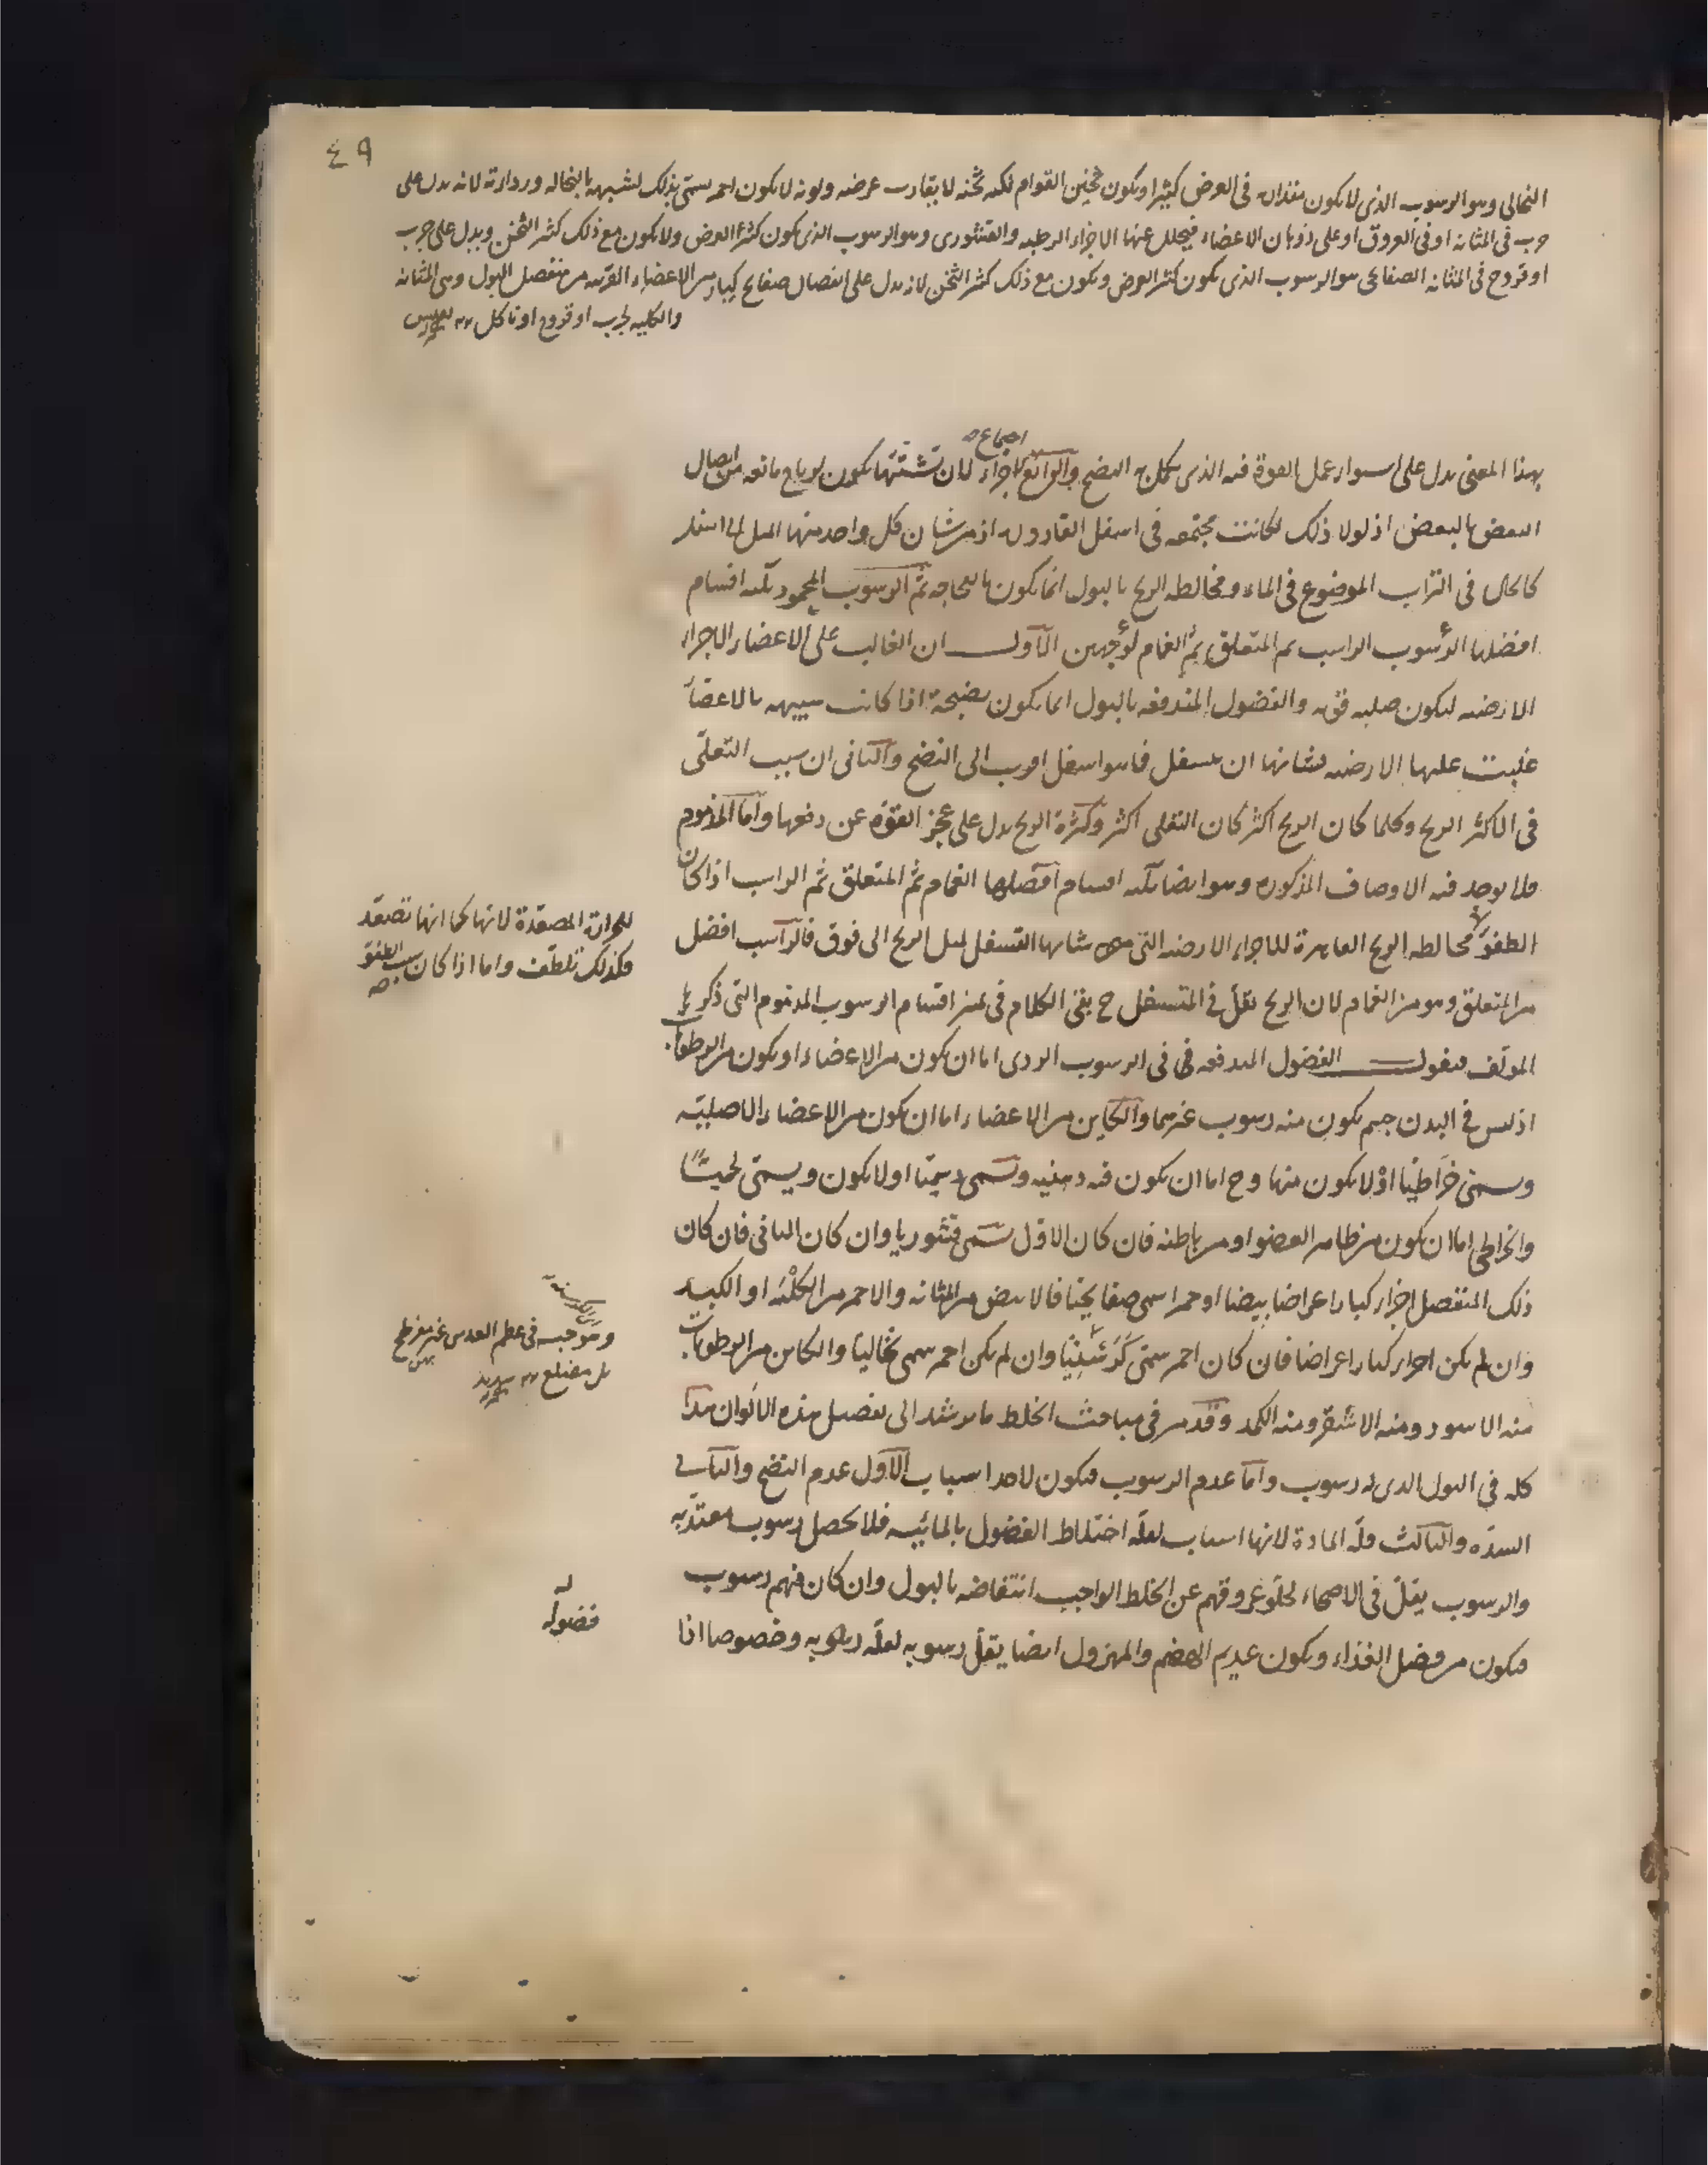 ٤٩
النخالى وهو الرسوب الذى لا يكون مقداره فى العرض كثيرا ويكون ثخين القوام لكنه ثخنه لا يقارب عرضه ولونه لا يكون احمر سمّى بذلك لشبهه بالنخاله ورداءته لانه يدل على
جرب فى المثانه او فى العروق او على ذوبان الاعضاء فيحلل عنها الاجزاء الرطبه والقشورى وهو الرسوب الذى يكون كثير العرض ولا يكون مع ذلك كثير الثخن ويدل على جرب
او قروح فى المثانه الصفائحى هو الرسوب الذى يكون كثير العرض ويكون مع ذلك كثير الثخن لانه يدل على انفصال صفايح كبار من الاعضاء القريبه من منفصل البول وهى المثانه
والكليه لجرب او قروح او تاكل
اجتماع
بهذا المعنى يدل على استواء عمل القوة فيه الذى يكمل به النضج والرابع الاجزاء لان تشتتها يكون لرياح مانعه من اتصال
البعض بالبعض اذ لولا ذلك لكانت مجتمعه فى اسفل القاروره اذ من شان كل واحد منها الميل الى اسفل
كالحال فى التراب الموضوع فى الماء ومخالطه الريح بالبول انما يكون بالفجاجه ثم الرسوب المحمود ثلثه اقسام
افضلها الرسوب الراسب ثم المتعلق ثم الغمام لوجهين الاول ان الغالب على الاعضاء الاجزاء
الارضيه ليكون صلبه قويه والفضول المندفعه بالبول انما يكون نضيجة اذا كانت شبيهه بالاعضاء
غلبت عليها الارضيه فشانها ان تسفل فما هو اسفل اقرب الى النضج والثانى ان سبب التعلّى
فى الاكثر الريح وكلما كان الريح اكثر كان التعلى اكثر وكثرة الريح يدل على عجز القوة عن دفعها واما المذموم
فلا يوجد فيه الاوصاف المذكوره وهو ايضا ثلثه اقسام افضلها الغمام ثم المتعلق ثم الراسب اذا كان
للحرارة المصعّدة لانها كما انها تصعّد
فكذلك تلطّف واما اذا كان سبب الطفو
الطفوّ مخالطه الريح العاصرة للاجزاء الارضيه التى من شانها التسفل لميل الريح الى فوق فالراسب افضل
من المتعلق وهو من الغمام لان الريح تقلّ فى المتسفل ح بقى الكلام فى غير اقسام الرسوب المذموم التى ذكرها
المولف فنقول الفضول المندفعه فى الرسوب الردى اما ان يكون من الاعضاء او يكون من الرطوبات
اذ ليس فى البدن جسم يكون منه رسوب غيرهما والكاين من الاعضاء اما ان يكون من الاعضاء الاصليّه
وسمى خراطيّا او لا يكون منها وح اما ان يكون فيه دهنيه وتسمى دسميّا او لا يكون ويسمّى لحميّا
والخراطى اما ان يكون من ظاهر العضو او من باطنه فان كان الاوّل سمى قشوريا وان كان الثانى فان كان
ذلك المنفصل اجزاء كبار اعراضا بيضا او حمرا سمى صفايحيّا فالابيض من المثانه والاحمر من الكلْيه او الكبد
وان لم يكن اجزاء كبار اعراضا فان كان احمر سمّى كَرْسَنيّا وان لم يكن احمر سمى نخاليّا والكاين من الرطوبات
الكرسنة
وهو حبه فى عظم العدس غير مفرطح
بل مضلع
منه الاسود ومنه الاشقر ومنه الكمد وقد مر فى مباحث الخلط ما يرشد الى تفصيل هذه الالوان هذا
كله فى البول الذى له رسوب واما عدم الرسوب فيكون لاحد اسباب الاول عدم النضج والثانى
السدّه والثالث قلّه المادة لانها اسباب لقلّه اختلاط الفضول بالمائيّه فلا يحصل رسوب معتدّ به
والرسوب يقلّ فى الاصحاء لخلوّ عروقهم عن الخلط الواجب انتفاضه بالبول وان كان فيهم رسوب
فضوله
فيكون من فضل الغذاء ويكون عديم الهضم والمهزول ايضا يقلّ رسوبه لقلّه رطوبه وخصوصا اذا